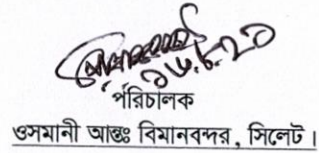 পরিচালক
ওসমানী আন্তঃ বিমানবন্দর, সিলেট।